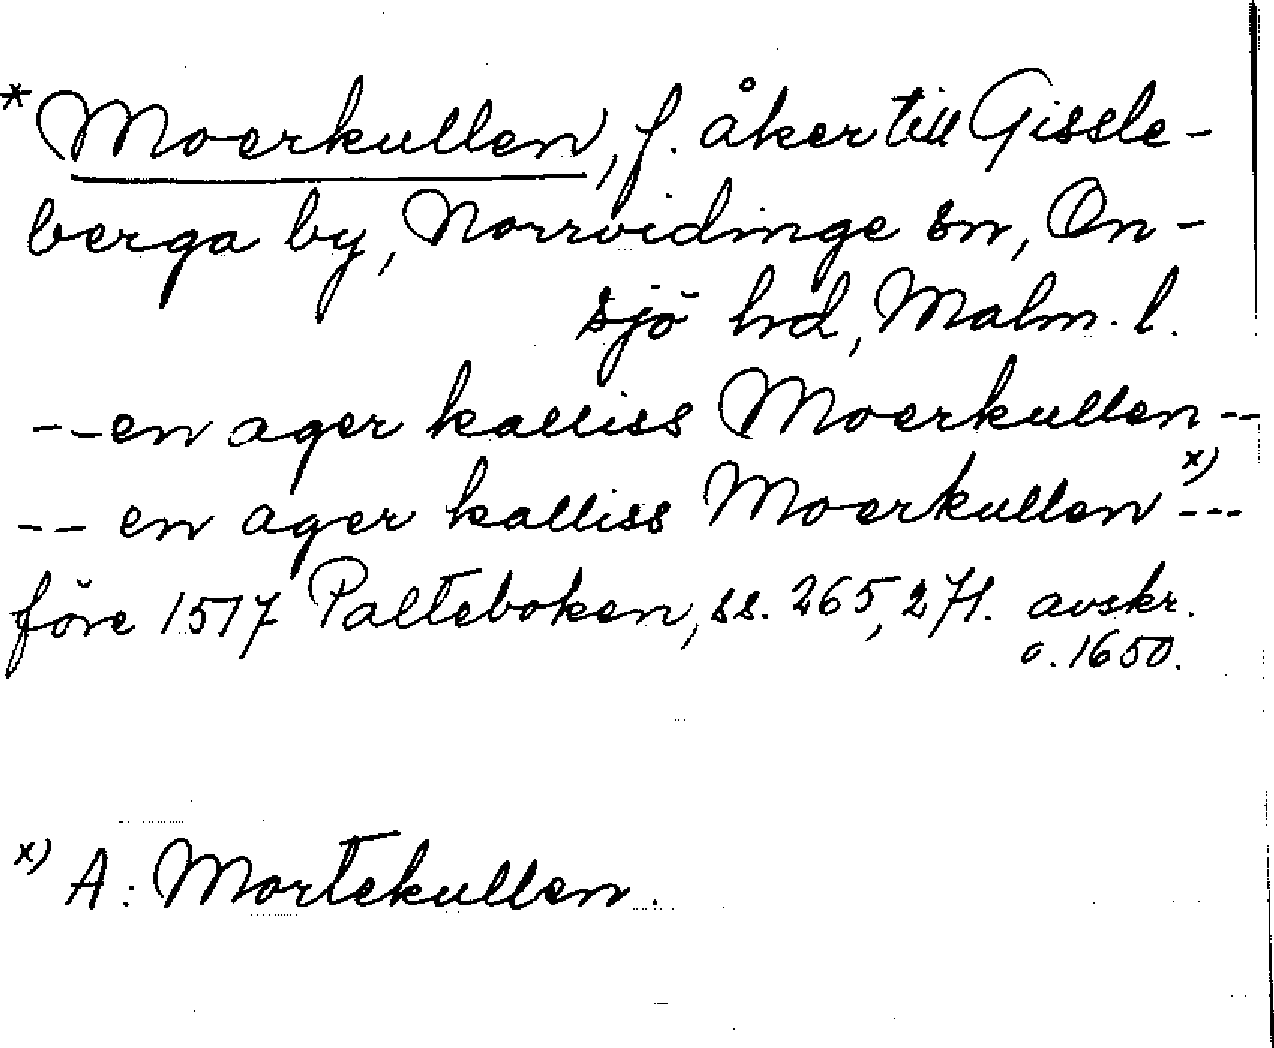 *Moerkullen, f. åker till Gissle-
berga by, Norrvidinge sn, On-
sjö hrd, Malm. l.
--en ager kalliss Moerkullen--
-- en ager kalliss Moerkullen x)---
före 1517 Palteboken, ss. 265, 271. avskr.
o. 1650.
x) A: Mortekullen.